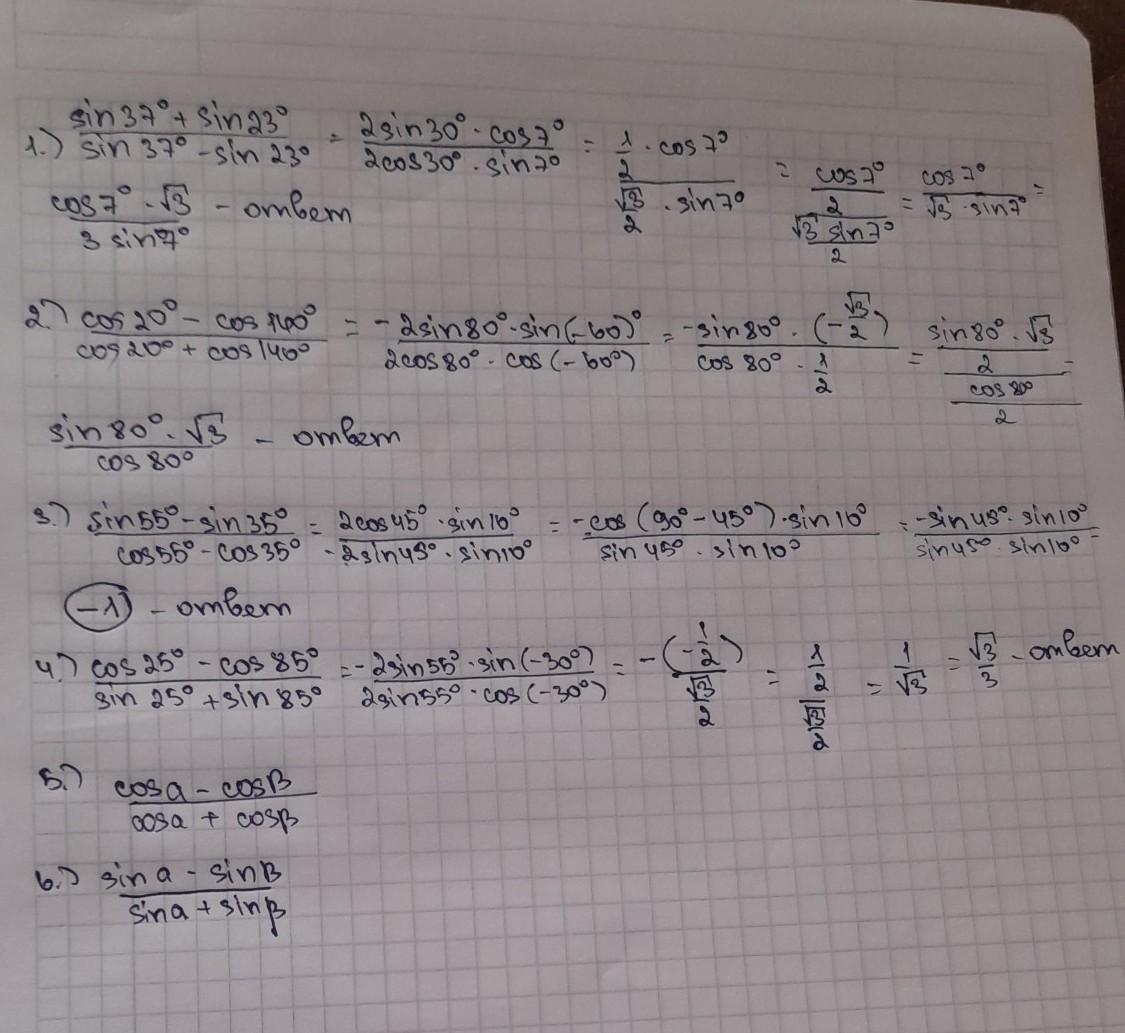 1.) (sin37° + sin23°)/(sin37° - sin23°) = (2sin30° · cos7°)/(2cos30° · sin7°) = (1/2 · cos7°)/(√3/2 · sin7°) = (cos7°/2)/(√3 sin7°/2) = cos7°/(√3 · sin7°) =
(cos7° · √3)/(3 sin7°) - ответ
2.) (cos20° - cos140°)/(cos20° + cos140°) = (-2sin80° · sin(-60)°)/(2cos80° · cos(-60°)) = (-sin80° · (-√3/2))/(cos80° · 1/2) = (sin80° · √3/2)/(cos80°/2) =
(sin80° · √3)/cos80° - ответ
3.) (sin55° - sin35°)/(cos55° - cos35°) = (2cos45° · sin10°)/(-2sin45° · sin10°) = (-cos(90° - 45°) · sin10°)/(sin45° · sin10°) = (-sin45° · sin10°)/(sin45° · sin10°) =
-1 - ответ
4.) (cos25° - cos85°)/(sin25° + sin85°) = (-2sin55° · sin(-30°))/(2sin55° · cos(-30°)) = (-(-1/2))/(√3/2) = (1/2)/(√3/2) = 1/√3 = √3/3 - ответ
5.) (cosa - cosβ)/(cosa + cosβ)
6.) (sina - sinβ)/(sina + sinβ)